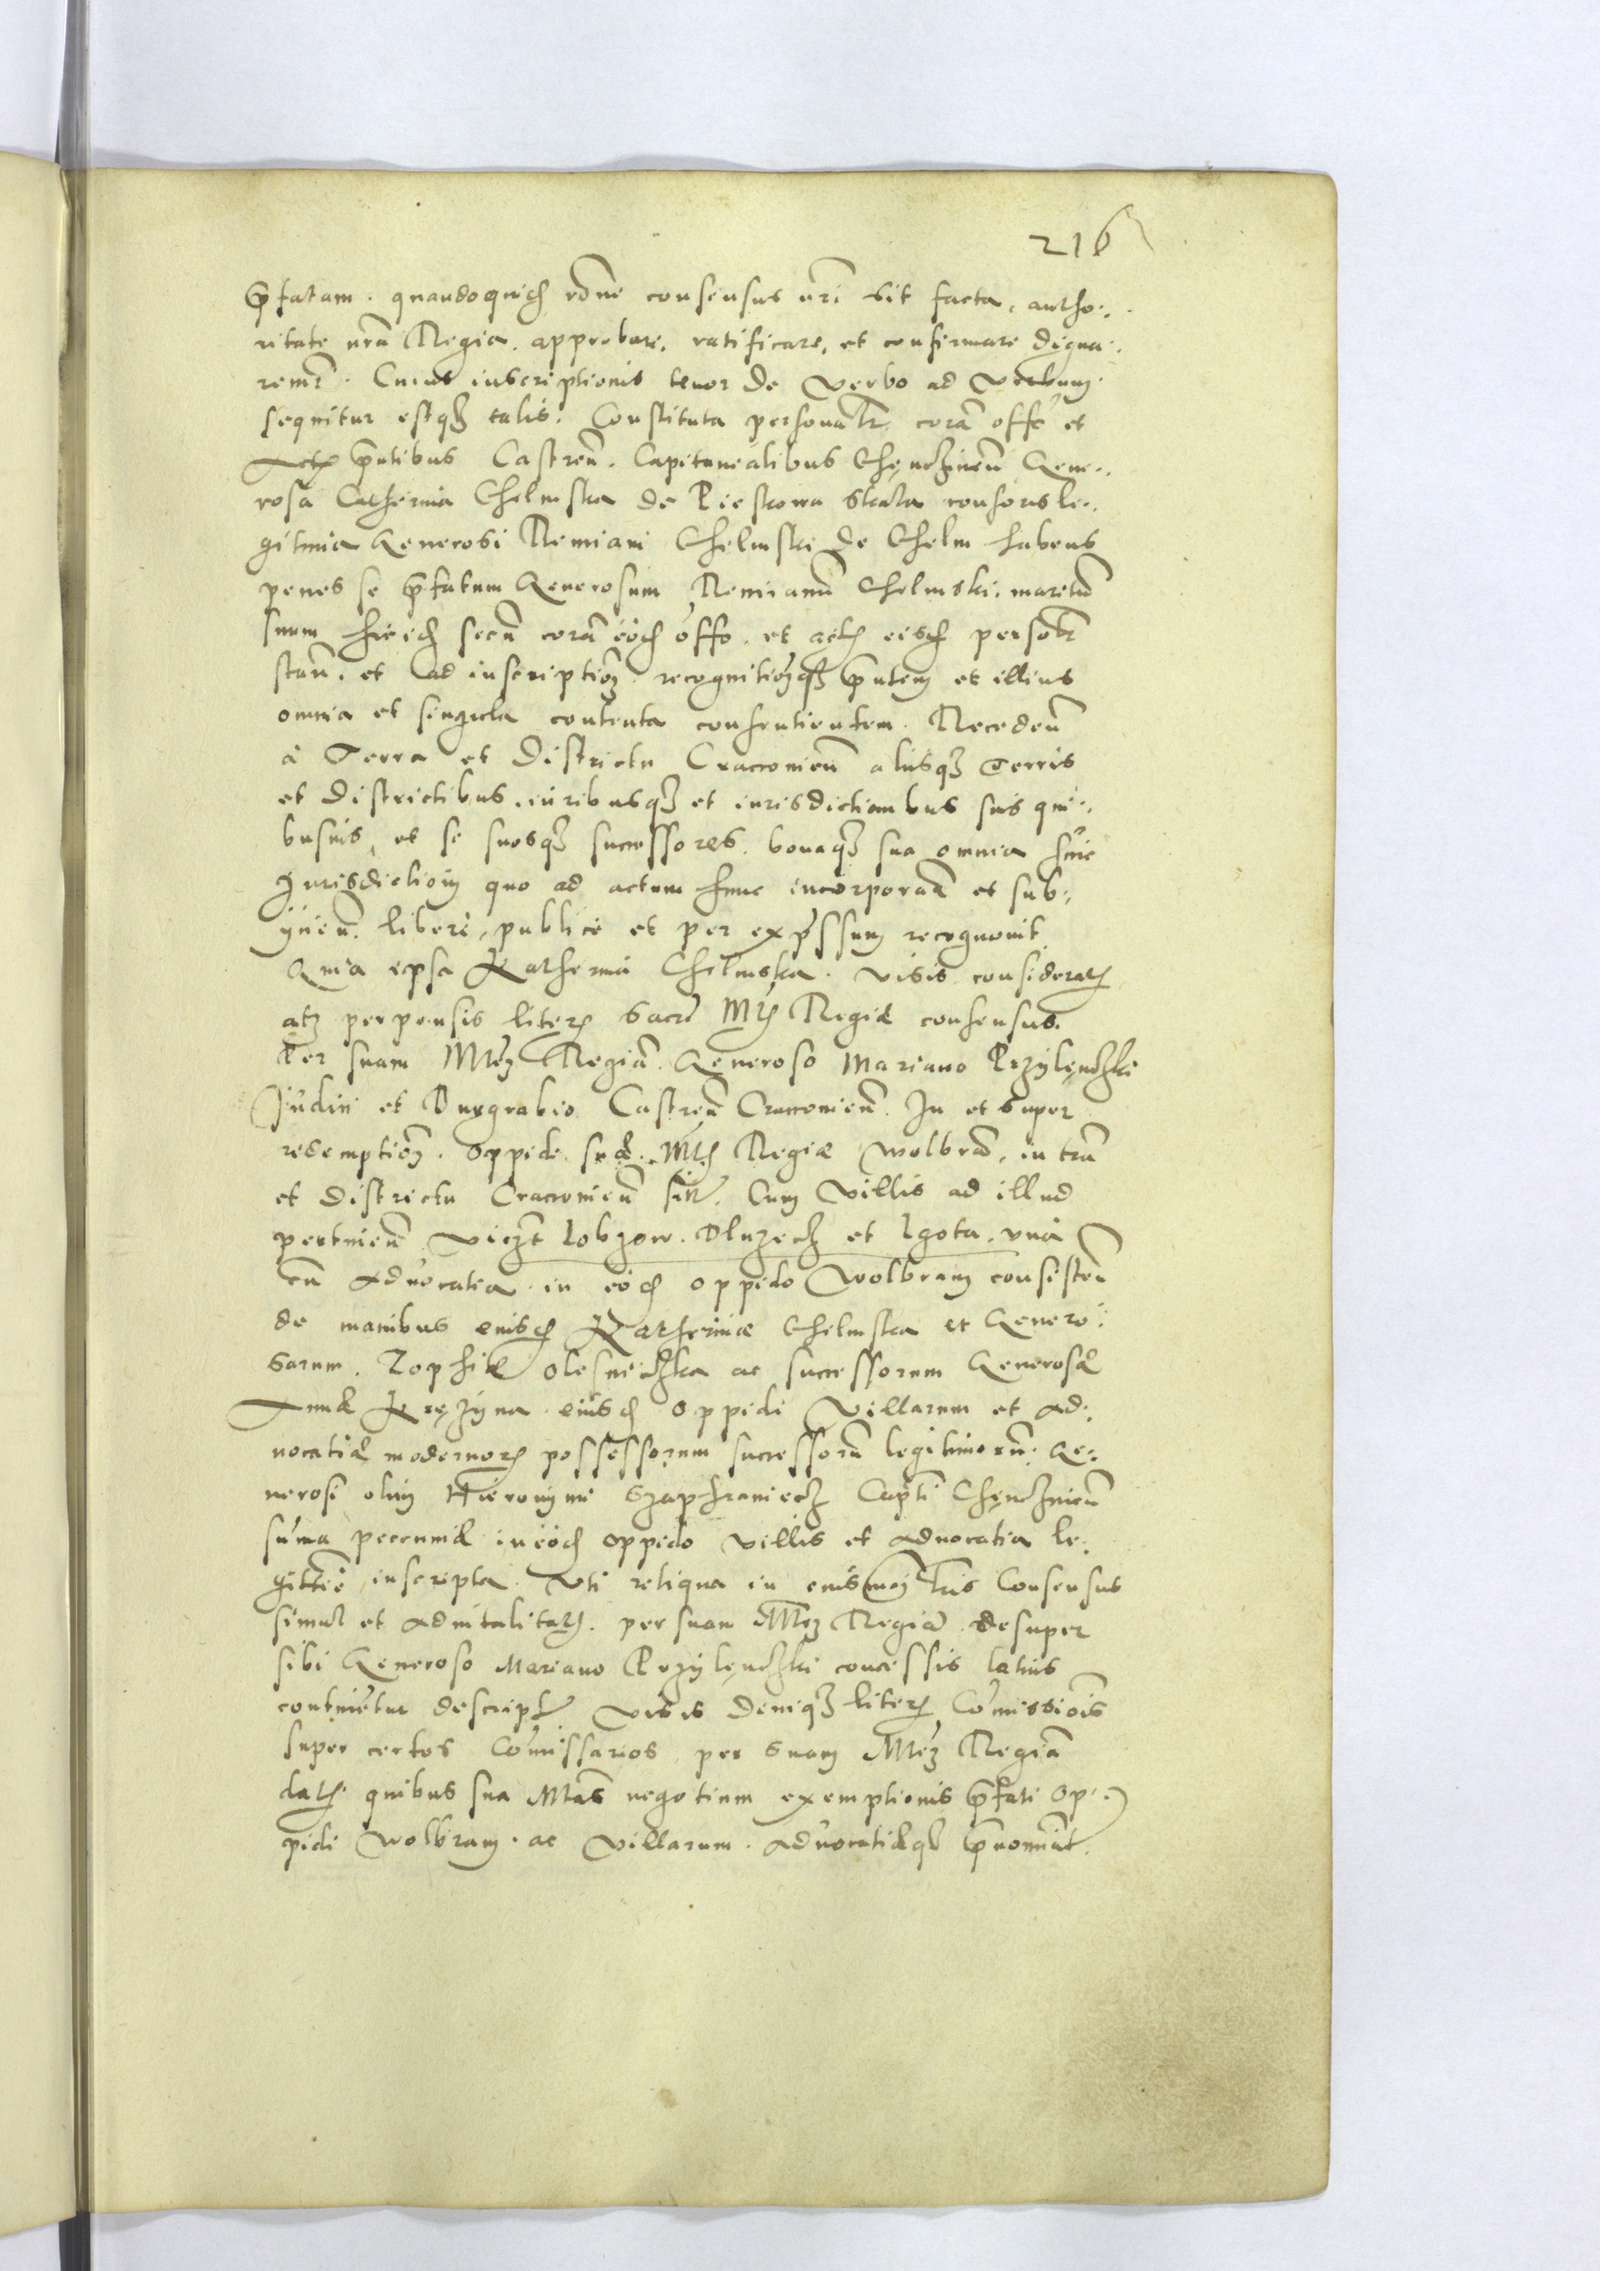 216
p̄fatam. quandoquid rōne consensus nr̄i sit facta, autho-
ritate nr̄a Regia. approbare, ratificare, et confirmare digna-
remr̄. Cuius inscriptionis tenor de verbo ad verbum
sequitur estqз talis. Constituta personalr̄ corā offō et
Actis p̄ntibus Castreñ. Capitanealibus Chęnczineñ Gene-
rosa Catherina Chelmska de Pieskowa Skala consors le-
gitima Generosi Remiani Chelmski de Chelm habens
penes se p̄fatum Generosum Remianū Chelmski. maritū
suum hic id secū corā eōd offo. et actis eisd persolr̄
stañ. et ad inscriptiōз recognitiōзqз p̄ntem et illius
omnia et singula contenta consentientem. Recedeñ
à Terra et Districtu Cracovieñ aliisqз Terris
et Districtibus. iuribusqз et iurisdictionibus suis qui-
busuis, et se suosqз successores. bonaqз sua omnia huic
Jurisdictioni quo ad actum hunc incorporañ et sub-
ijcieñ. liberè, publicè et per expressum recognouit
Quia ipsa Katherina Chelmska. visis consideratis
atqз perpensis literis Sacrę Mtis Regiæ consensus.
Per suam Mtēз Regiā. Generoso Mariano Przylęczki
Judici et Burgrabio Castreñ Cracovieñ. In et super
redemptiōз. oppidi suæ. Mtis Regiæ Wolbrā, in trā
et districtu Cracovieñ sitr̄. Cum villis ad illud
pertineñ vicзt Lobzow. Dluzecz et Lgota. vnà
cū aduocatia in eōd oppido Wolbram consisteñ
de manibus eiusd Katherinæ Chelmska et Genero-
sarum. Zophiæ Olesniczka ac successorum Generosæ
Annæ Kręzyna eiusd oppidi villarum et ad-
uocatiæ modernoris possessorum successorū legitimorū. Ge-
nerosi olim Hieronymi Szaphraniecz Capti Chęncznieñ
sum̄a pecuniæ in eōd oppido villis et aduocatia le-
gittiē inscripta. Vti reliqua in eiusmōi lr̄is Consensus
simul et aduitalitatis. per suam Mtēз Regiā desuper
sibi Generoso Mariano Przylęczki concessis latius
continētur descripta. visis deniqз literis Com̄issiōis
super certos Com̄issarios per suam Mtēз Regiā
datis. quibus sua Mtās negotium exemptionis p̄fati op-
pidi Wolbram. ac villarum. aduocatiæqз p̄nominat.